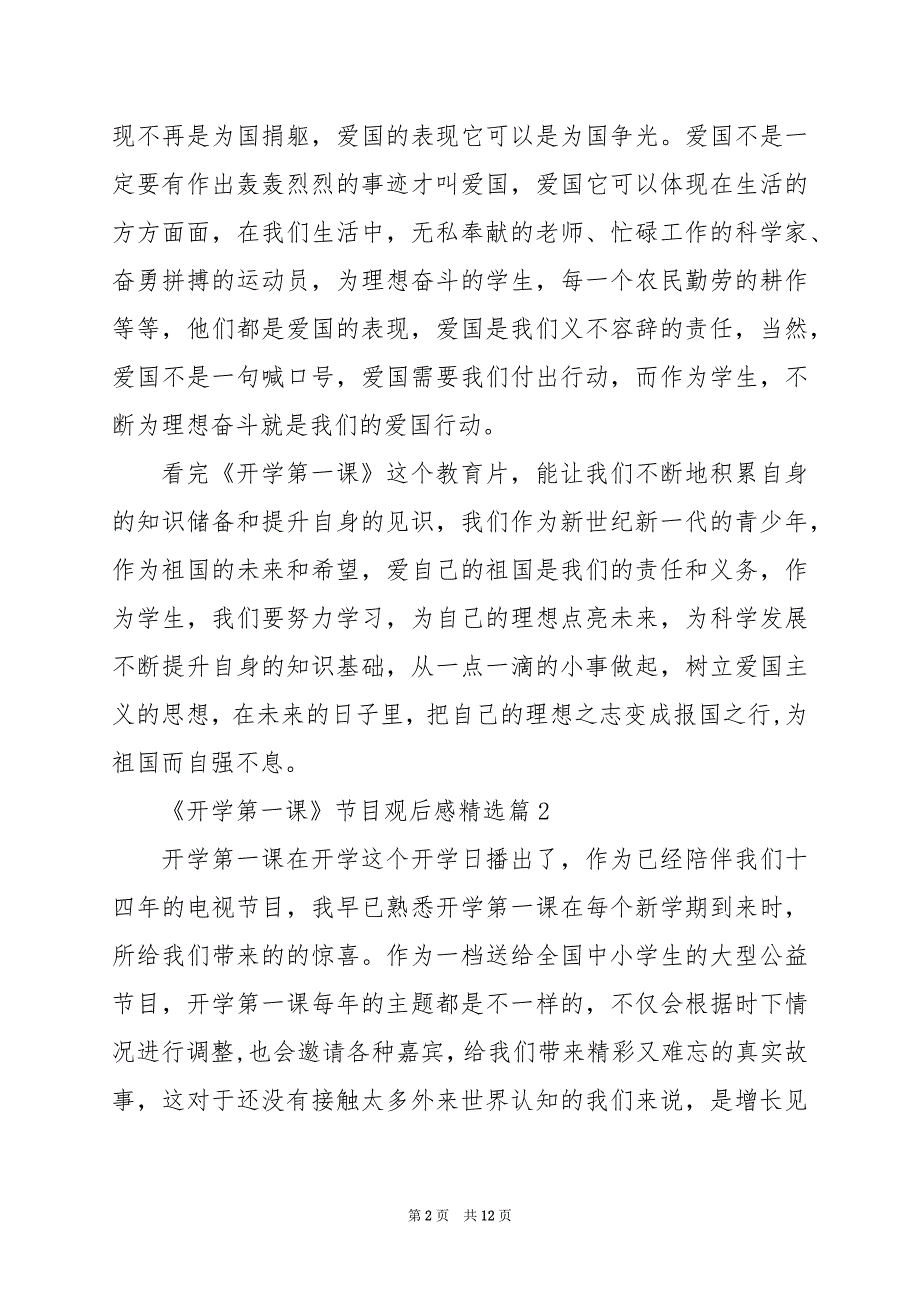 现不再是为国捐躯，爱国的表现它可以是为国争光。爱国不是一
定要有作出轰轰烈烈的事迹才叫爱国，爱国它可以体现在生活的
方方面面，在我们生活中，无私奉献的老师、忙碌工作的科学家、
奋勇拼搏的运动员，为理想奋斗的学生，每一个农民勤劳的耕作
等等，他们都是爱国的表现，爱国是我们义不容辞的责任，当然，
爱国不是一句喊口号，爱国需要我们付出行动，而作为学生，不
断为理想奋斗就是我们的爱国行动。
看完《开学第一课》这个教育片，能让我们不断地积累自身
的知识储备和提升自身的见识，我们作为新世纪新一代的青少年，
作为祖国的未来和希望，爱自己的祖国是我们的责任和义务，作
为学生，我们要努力学习，为自己的理想点亮未来，为科学发展
不断提升自身的知识基础，从一点一滴的小事做起，树立爱国主
义的思想，在未来的日子里，把自己的理想之志变成报国之行,为
祖国而自强不息。
《开学第一课》节目观后感精选篇2
开学第一课在开学这个开学日播出了，作为已经陪伴我们十
四年的电视节目，我早已熟悉开学第一课在每个新学期到来时，
所给我们带来的的惊喜。作为一档送给全国中小学生的大型公益
节目，开学第一课每年的主题都是不一样的，不仅会根据时下情
况进行调整,也会邀请各种嘉宾，给我们带来精彩又难忘的真实故
事，这对于还没有接触太多外来世界认知的我们来说，是增长见
第 2 页 共 12 页